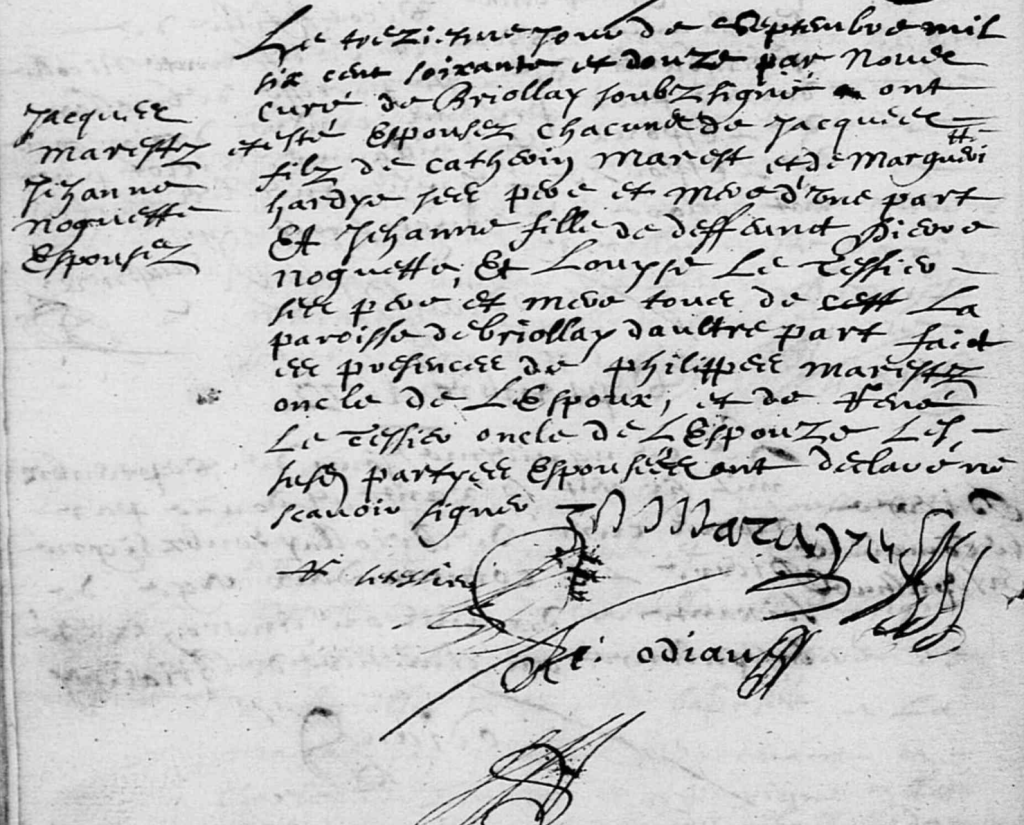 Le trezieme jour de Septembre mil
six cent soixante et douze par Nous
curé de Briollay soubzsigné ont
esté Espousez chacuns de Jacques
filz de Catherin Marest et de Marguerit
hardye ses pere et mere d'une part
Et Jehanne fille de deffunct Pierre
Noguette, Et Louyse Le Tessier
ses pere et mere tous de cest La
paroisse de Briollay daultre part faict
es presences de Philippes Marestz
oncle de L'Espoux, et de René
Le Tessier oncle de L'Espouze Les
susd partyes Espousées ont declaré ne
scavoir signer
Jacques
Marestz et
Jehanne
Noguette
Espousez
R letessier